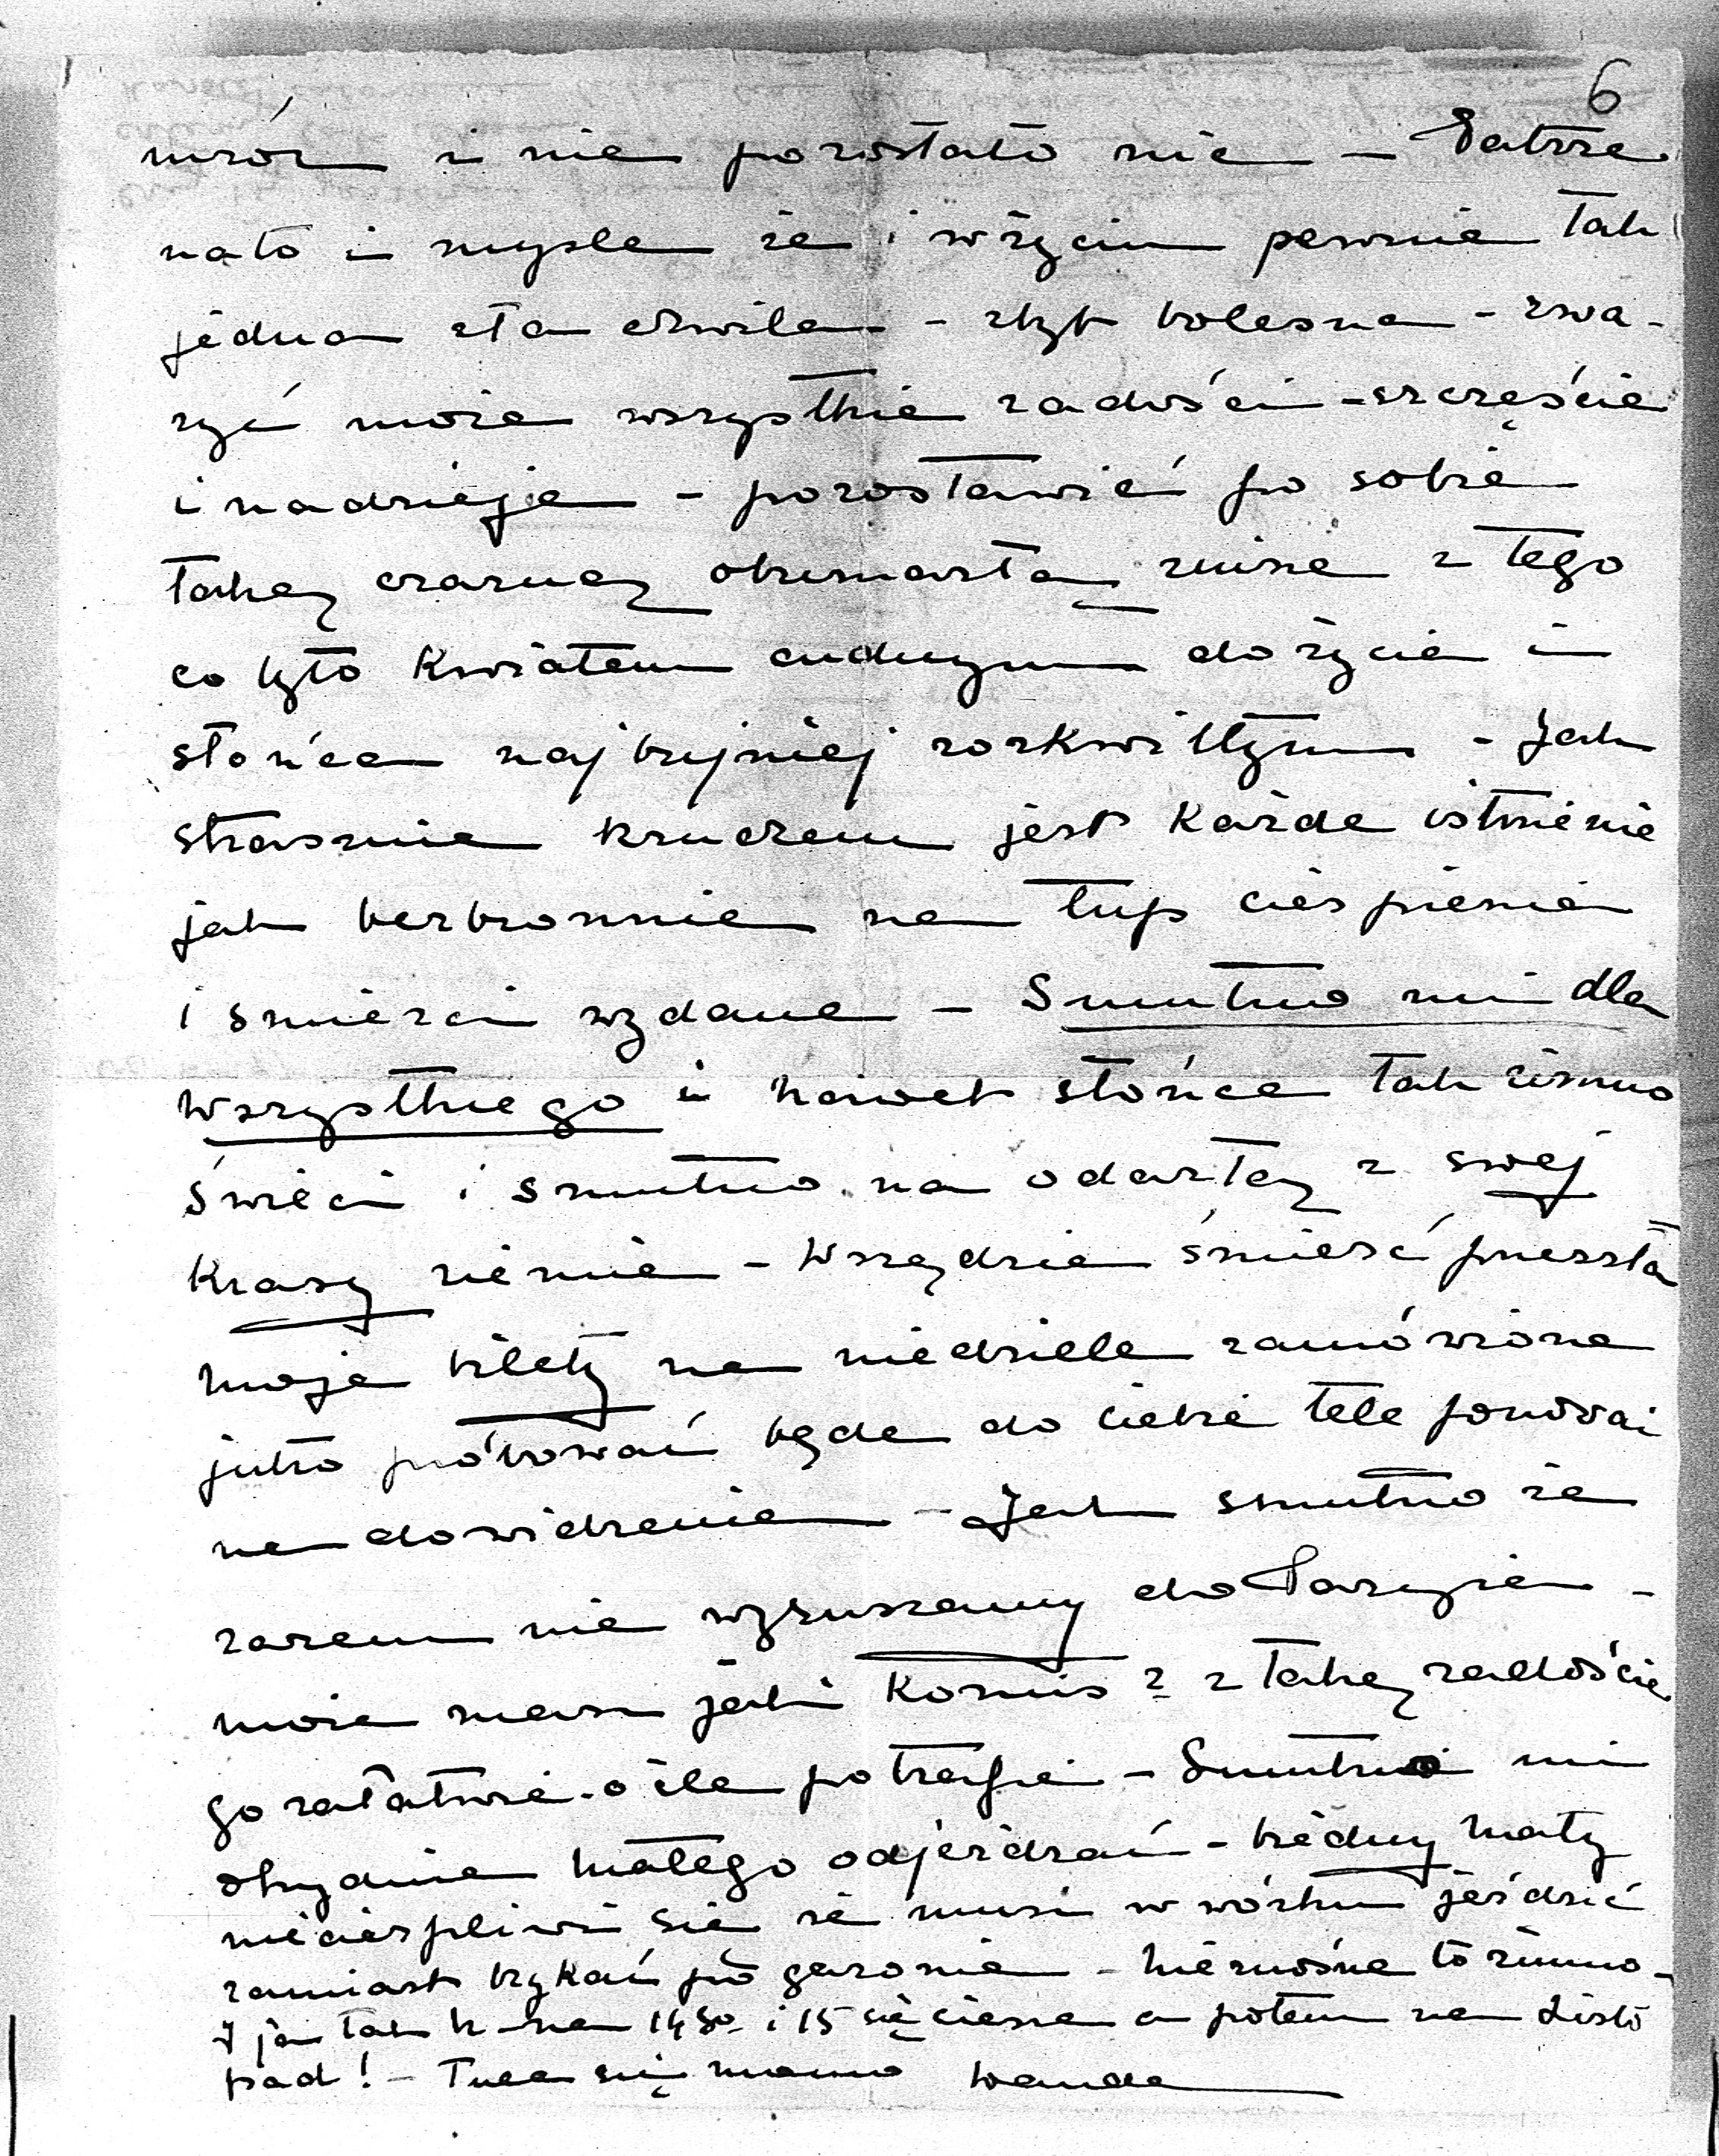 6
mróz i nie pozostało nic – Patrze
na to i mysle że i w życiu pewnie tak
jedna zła chwila – zbyt bolesna – zwa-
rzyć może wszystkie radości – szczęście
i nadzieje – pozostawić po sobie
taką czarną obumarłą z tego
co było kwiatem cudnym do życia i
słońca najbujniej rozkwitłym – Jak
strasznie kruchem jest każde istnienie
jak bezbronnie na łup cierpienia
i smierci wydane – Smutno mi dla
wszystkiego i nawet słońce tak zimno
świeci i smutno na odartą z swej
krasy ziemie – Wszędzie śmierć przeszła
moje bilety na niedziele zamówione
jutro próbować będe do ciebie telefonować
na dowidzenia – Jak smutno że
razem nie wyruszamy do Paryża –
może masz jaki Komis? z taką radością
go załatwie – o ile potrafie – Smutno mi
małego odjeżdzać – biedny mały
niecierpliwi sie że musi w wózku jeździć
zamiast brykać po gazonie – nie można to zimno –
I ja tak na 14go i 15 się ciesze a potem na Listo
pad! – Tule się mamo Wanda